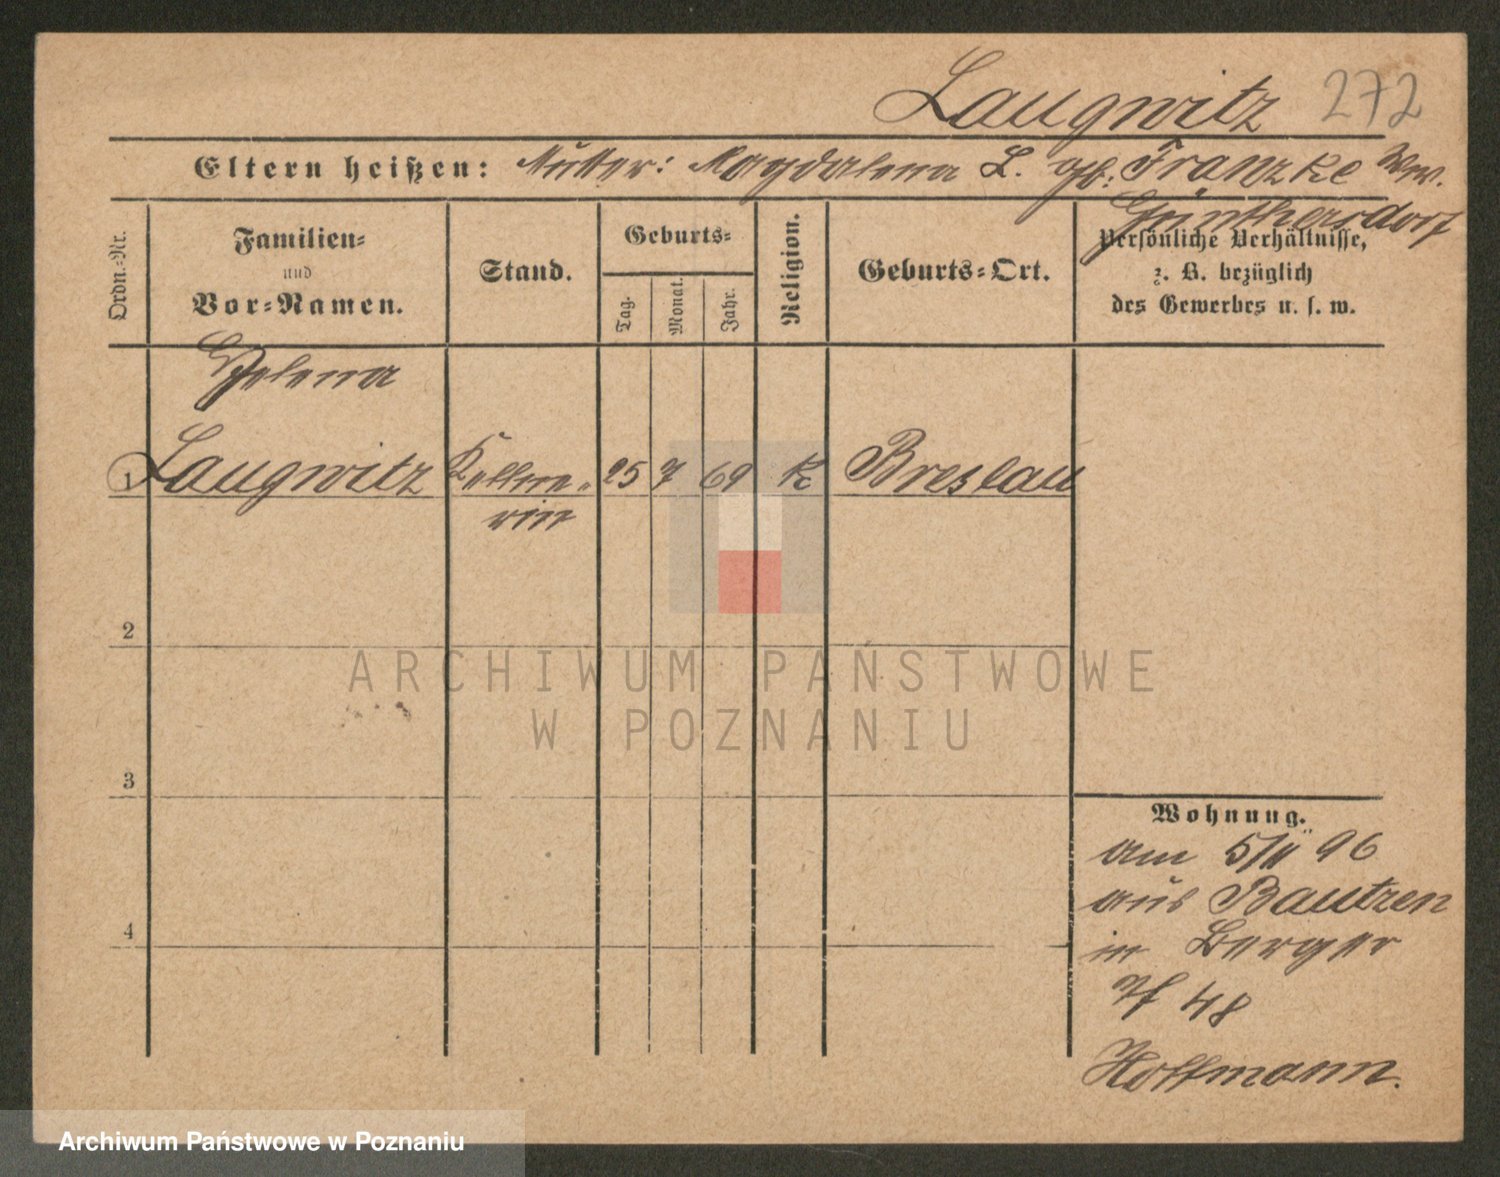 Laugwitz 272
Eltern heißen: Mutter: Magdalena L. geb: Franzke Ww.
Günthersdorf
Ordn.-Nr.
Familien-
und
Vor-Namen.
Stand.
Geburts-
Tag.
Monat.
Jahr.
Religion.
Geburts-Ort.
Persönliche Verhältnisse,
z. B. bezüglich
des Gewerbes u. s. w.
Helena
1 Laugwitz Kellne- 25 7 69 K Breslau
rin
2
ARCHIWUM PAŃSTWOWE
W POZNANIU
3
Wohnung.
am 5/11 96
aus Bautzen
in Berger
48
4
Hoffmann.
Archiwum Państwowe w Poznaniu